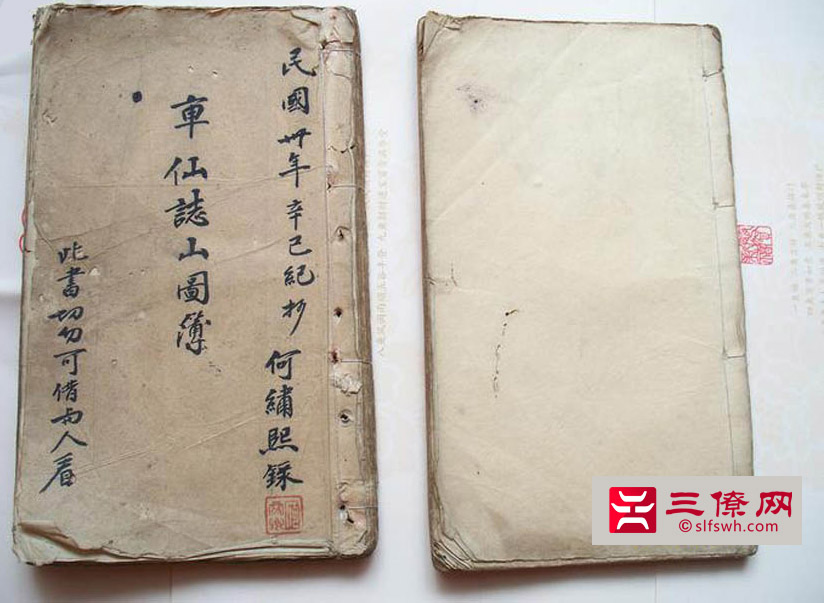 民國卅年辛巳紀抄
何繡熙錄
車仙誌山圖簿
此書切勿可借与人看
三僚网
©slfswh.com